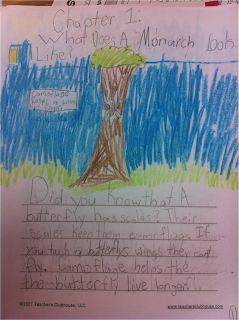 Chapter 1:
What Does A Monarch look
Like!
Camoflage
helps a
Did you know that A
butterfly has scales? Their
scales keep them camoflage. If
you tuch a butterflys wings they cant
fly. Camoflage helps the
the butterfly live longer.
©2007 Teacher's Clubhouse, LLC
www.teachersclubhouse.com